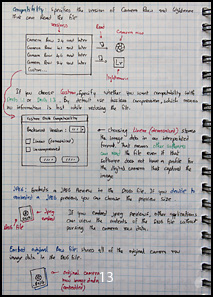 Compatibility: Specifies the version of Camera Raw and Lightroom
that can read the file.
versions
Read
Camera raw
Camera Raw 2.4 and later
Camera Raw 4.1 and later
Camera Raw 4.6 and later
Camera Raw 5.4 and later
Custom...
Lr
If you choose Custom, Specify whether you want compatibility with
DNG 1.1 or DNG 1.3. By default use lossless compression, which means
no information is lost while reducing the file
Custom DNG Compatibility
Backward Version:
Linear (demosaiced)
Uncompressed
choosing Linear (demosaiced) stores
the image data in an interpolated
format. That means other software
can read the file even if that
software does not have a profile for
the digital camera that captured the
image
JPEG: Embeds a JPEG Preview in the DNG file. If you decide to
embedded a JPEG preview, you can choose the preview size.
jpeg
embed
DNG file
If you embed jpeg preview, other applications
can view the contents of the DNG file without
parsing the camera raw data.
Embed original Raw file: stores all of the original camera raw
image data in the DNG file.
Original camera
raw image data
(embedded)
13